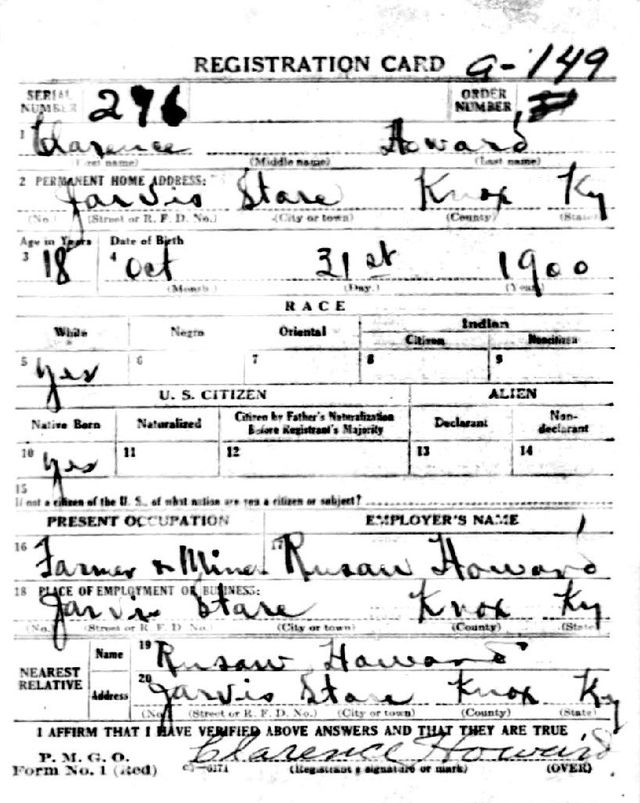 REGISTRATION CARD a-149
SERIAL NUMBER 276 ORDER NUMBER
1 Clarence Howard
(First name) (Middle name) (Last name)
2 PERMANENT HOME ADDRESS:
Jarvis Stare Knox Ky
(No.) (Street or R. F. D. No.) (City or town) (County) (State)
Age in Years Date of Birth
3 18 4 Oct 31st 1900
(Month.) (Day.) (Year.)
RACE
White Negro Oriental Indian
Citizen Noncitizen
5 Yes 6 7 8 9
U. S. CITIZEN ALIEN
Native Born Naturalized Citizen by Father's Naturalization Before Registrant's Majority Declarant Non-declarant
10 Yes 11 12 13 14
15
If not a citizen of the U. S., of what nation are you a citizen or subject?
PRESENT OCCUPATION EMPLOYER'S NAME
16 Farmer & Miner 17 Rusaw Howard
18 PLACE OF EMPLOYMENT OR BUSINESS:
Jarvis Stare Knox Ky
(No.) (Street or R. F. D. No.) (City or town) (County) (State)
NEAREST RELATIVE
Name 19 Rusaw Howard
Address 20 Jarvis Stare Knox Ky
(No.) (Street or R. F. D. No.) (City or town) (County) (State)
I AFFIRM THAT I HAVE VERIFIED ABOVE ANSWERS AND THAT THEY ARE TRUE
P. M. G. O.
Form No. 1 (Red) Clarence Howard
(Registrant's signature or mark) (OVER)